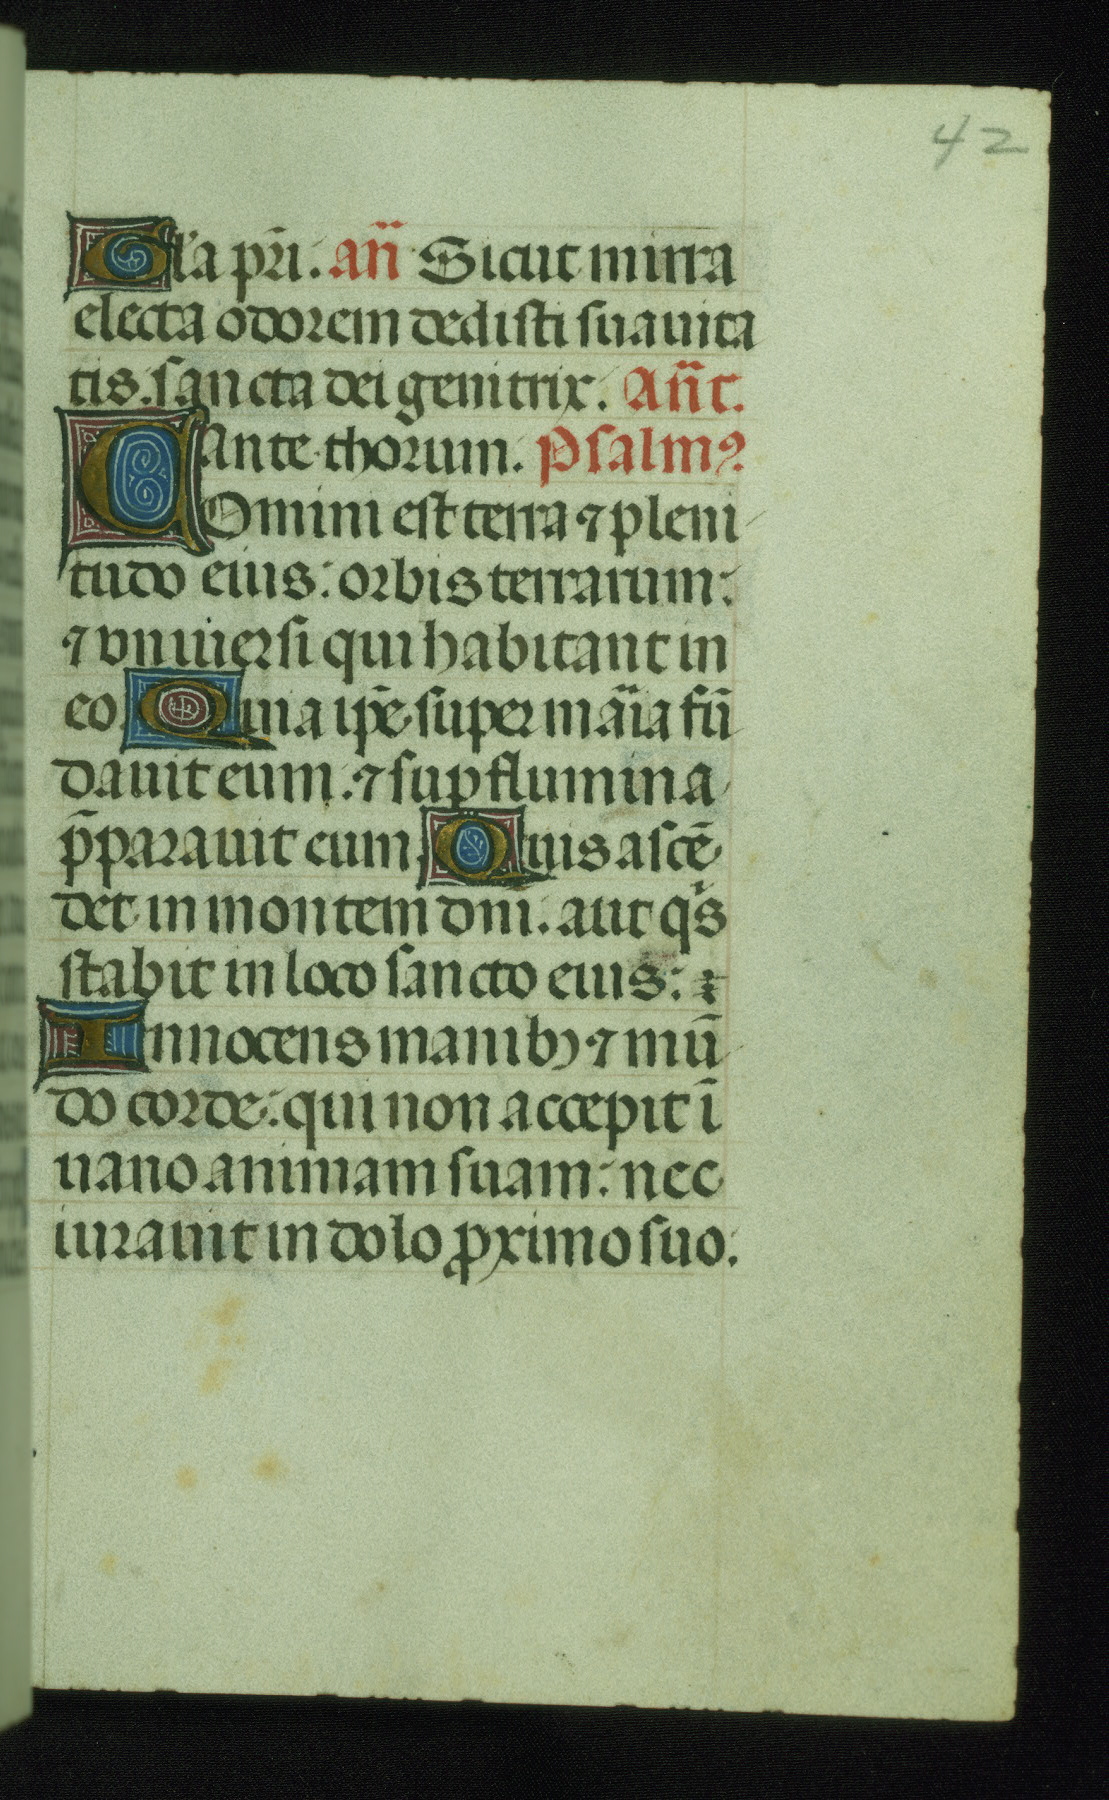 42
Gl'a pr̄i. an̄ Sicut mirra
electa odorem dedisti suauita
tis. sancta dei genitrix. An̄t.
Ante thorum. Psalmꝰ
Domini est terra ⁊ pleni
tudo eius: orbis terrarum:
⁊ vniuersi qui habitant in
eo. Quia ip̄e super maria fū
dauit eum. ⁊ sup flumina
p̄parauit eum. Quis ascē
det in montem dn̄i. aut qis
stabit in loco sancto eius:
Innocens manibꝫ ⁊ mū
do corde: qui non accepit ī
uano animam suam: nec
iurauit in dolo ꝓximo suo.